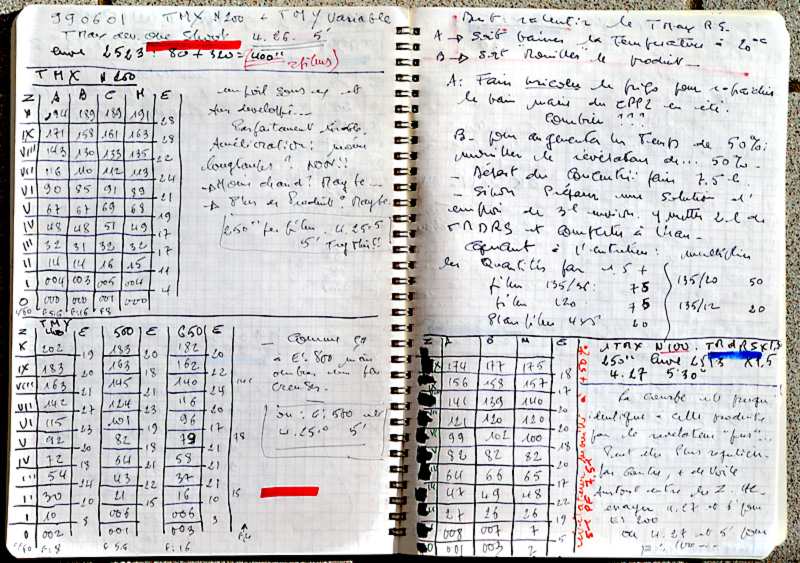 990601 TMX N200 + TMY Variable
TMax dev. One Shoot 4.26. 5'
2523: 80 + 320 = 400" (2 films)
TMX N 200
Z A B C M E
X 194 189 189 191 28
IX 171 158 161 163 28
VIII 143 130 133 135 22
VII 116 110 112 113 24
VI 90 85 91 89 21
V 67 67 69 68 19
IV 48 48 51 49 17
III 32 31 32 32 17
II 14 14 16 15 11
I 004 003 005 004 4
0 000 000 001 000
un poil sous ex et
sur developpé...
Parfaitement
Amélioration: moins
longtemps? NON!!
→ Moins chaud? Maybe...
→ Plus de Produit? Maybe
250" par film. 4.25.5
5' Try this!!
TMY
400 E 500 E 650 E
X 202 19 183 20 182 20
IX 183 20 163 18 162 22
VIII 163 21 145 21 140 24
VII 142 27 124 23 116 20
VI 115 23 101 19 96 17
V 92 20 82 18 79 21
IV 72 18 64 21 58 21
III 54 24 43 22 37 21
II 30 20 21 15 16 10
I 10 8 006 5 006 3
0 002 001 003
F:8 F:5.6 F:16
— Comme ça
à EI 800 mais
ombres un peu
creuses.
ou: EI 500 et
4.25.0 5'
But: ralentir le TMax RS.
A → Soit baisser la Température à 20°C
B → Soit "Mouiller" le produit—
A: Faire bricoler le frigo pour rafraichir
le bain mais du CPP2 en été.
Combien ???
B— pour augmenter les Temps de 50%:
mouiller le révélateur de... 50%.
— Départ du Concentré: faire 7.5 l.
— Sinon Préparer une solution d'
emploi de 3l environ. y mettre 2 l de
TMDRS et compléter à l'eau.
Quant à l'entretien: multiplier
les Quantités par 1.5 →
film 135/36: 75 135/20 50
film 120: 75 135/12 20
Plan film 4x5 20
Z A B M E
174 177 175 18
156 158 157 17
141 139 140 20
121 120 120 20
99 102 100 18
82 82 82 17
64 66 65 17
47 49 48 22
27 26 26 19
008 007 7 5
001 003 2
révélateur mouillé à +50%
5L PR 7.5L
1 TMX N100. TMdRS x 1,5
250" 2513 x1,5
4.27 5'30"
La courbe est presque
identique à celle produite
par le révélateur pur...
Peut être plus régulière
par contre, + de densité
surtout entre les Z.
envisager 4.27 et 6' pour
EI 200
ou 4.27 et 5' pour